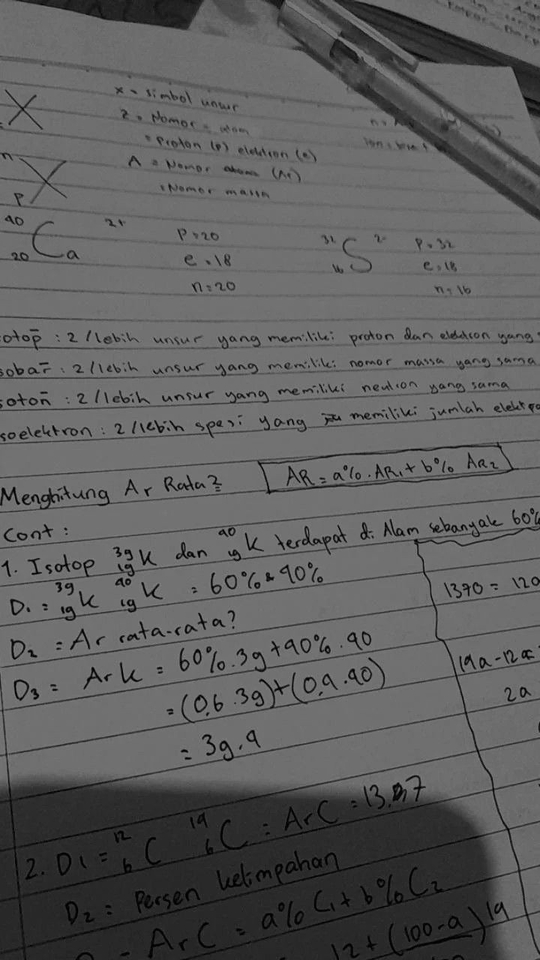 X
x = Simbol unsur
z = Nomor atom
= Proton (p) elektron (e)
A = Nomor (Ar)
= Nomor massa
n
p
X
40
20
Ca
2+
p = 20
e = 18
n = 20
32
16
S
2-
p = 32
e = 18
n = 16
otop : 2/lebih unsur yang memiliki proton dan elektron yang
sobar : 2/lebih unsur yang memiliki nomor massa yang sama
soton : 2/lebih unsur yang memiliki neutron yang sama
soelektron : 2/lebih spesi yang memiliki jumlah elektro
Menghitung Ar Rata2
AR = a% . AR1 + b% AR2
Cont :
1. Isotop 39 19 K dan 40 19 K terdapat di Alam sebanyak 60%
D1 = 39 19 K 40 19 K = 60% & 40%
D2 = Ar rata-rata?
D3 = Ar K = 60% . 39 + 40% . 40
= (0,6 . 39) + (0,4 . 40)
= 39.4
1370 = 12a
14a - 12a =
2a
2. D1 = 12 6 C 14 6 C = Ar C = 13.7
D2 = Persen kelimpahan
Ar C = a% C1 + b% C2
12 + (100 - a) 14